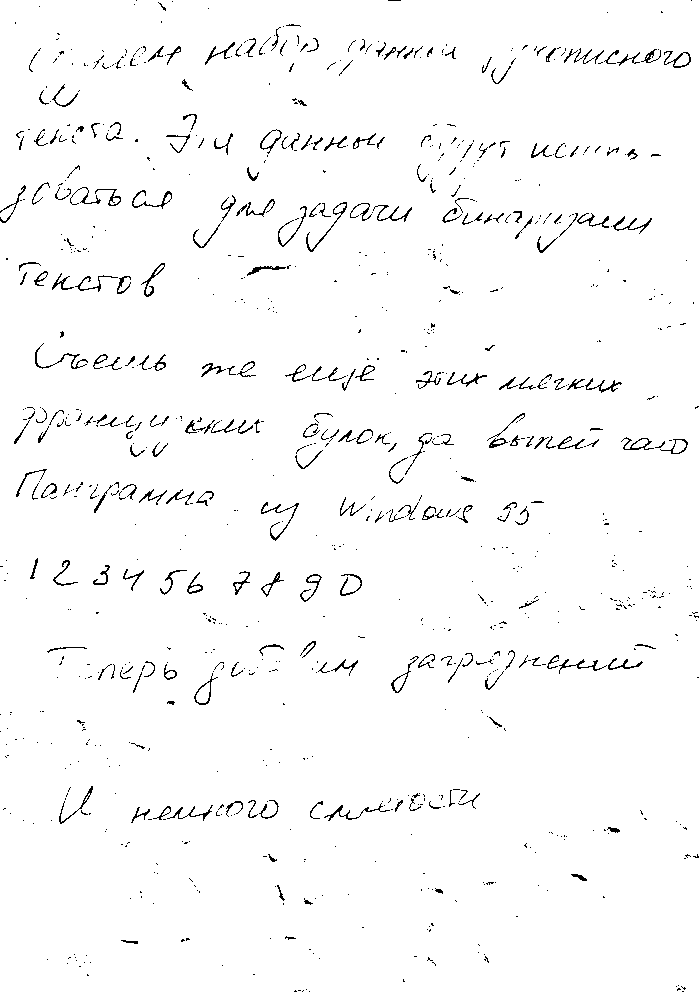 Сделаем набор данных рукописного
текста. Эти данные будут исполь-
зоваться для задачи бинаризации
текстов
Съешь же ещё этих мягких
французских булок, да выпей чаю
Панграмма из Windows 95
1 2 3 4 5 6 7 8 9 0
Теперь добавим загрязнений
И немного смятости